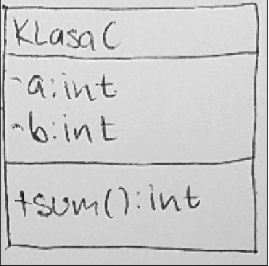 KLasaC
-a:int
-b:int
+sum():int